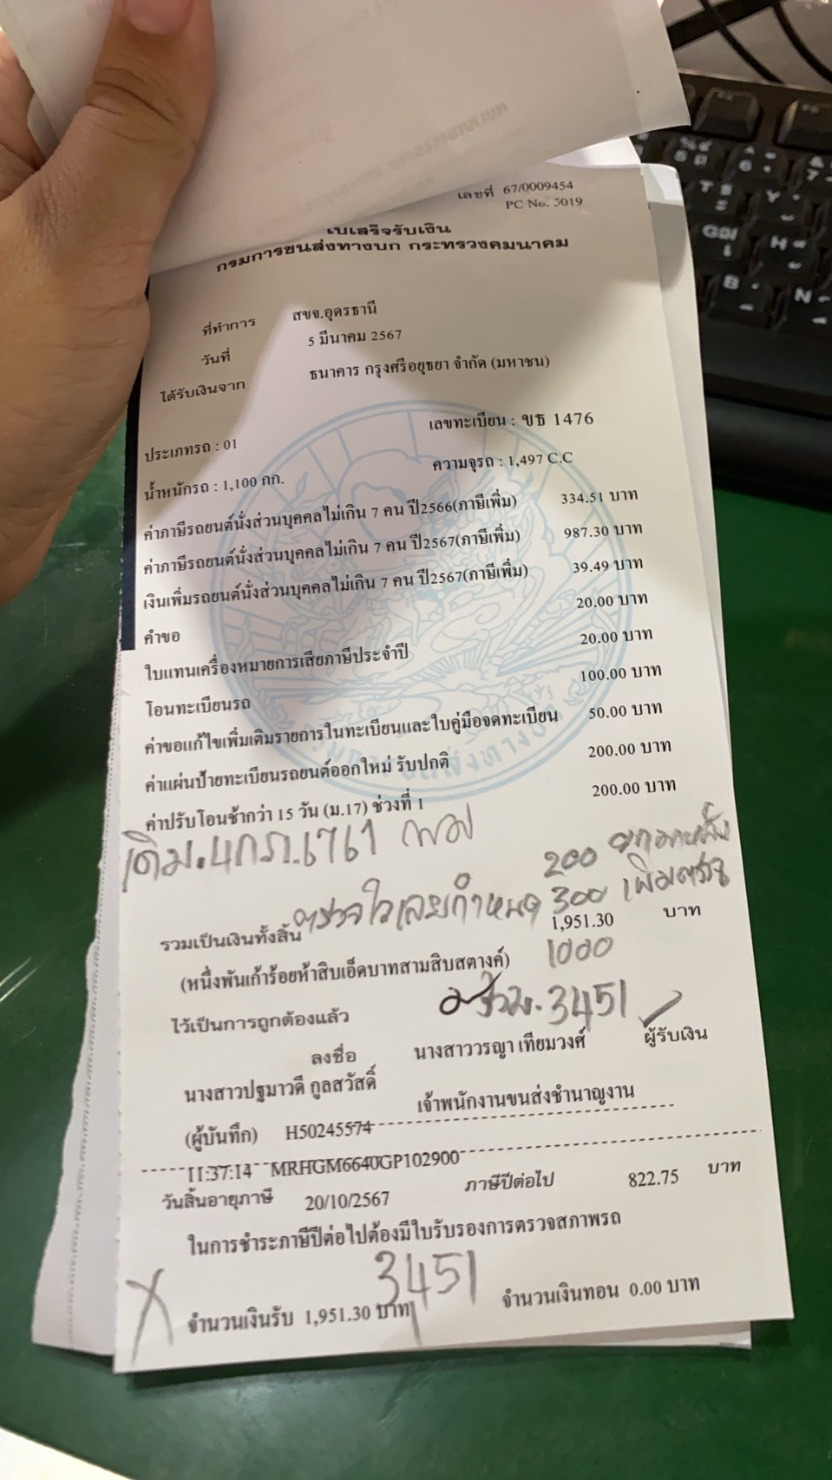 เลขที่ 67/0009454
PC No. 5019
ใบเสร็จรับเงิน
กรมการขนส่งทางบก กระทรวงคมนาคม
ที่ทำการ สขจ.อุดรธานี
วันที่ 5 มีนาคม 2567
ได้รับเงินจาก ธนาคาร กรุงศรีอยุธยา จำกัด (มหาชน)
ประเภทรถ : 01 เลขทะเบียน : ขธ 1476
น้ำหนักรถ : 1,100 กก. ความจุรถ : 1,497 C.C
ค่าภาษีรถยนต์นั่งส่วนบุคคลไม่เกิน 7 คน ปี2566(ภาษีเพิ่ม) 334.51 บาท
ค่าภาษีรถยนต์นั่งส่วนบุคคลไม่เกิน 7 คน ปี2567(ภาษีเพิ่ม) 987.30 บาท
เงินเพิ่มรถยนต์นั่งส่วนบุคคลไม่เกิน 7 คน ปี2567(ภาษีเพิ่ม) 39.49 บาท
คำขอ 20.00 บาท
ใบแทนเครื่องหมายการเสียภาษีประจำปี 20.00 บาท
โอนทะเบียนรถ 100.00 บาท
ค่าขอแก้ไขเพิ่มเติมรายการในทะเบียนและใบคู่มือจดทะเบียน 50.00 บาท
ค่าแผ่นป้ายทะเบียนรถยนต์ออกใหม่ รับปกติ 200.00 บาท
ค่าปรับโอนช้ากว่า 15 วัน (ม.17) ช่วงที่ 1 200.00 บาท
เดิม.4กภ.6761
200
ตรวจ เลยกำหนด 300 เพิ่ม
รวมเป็นเงินทั้งสิ้น 1,951.30 บาท
(หนึ่งพันเก้าร้อยห้าสิบเอ็ดบาทสามสิบสตางค์) 1000
ไว้เป็นการถูกต้องแล้ว รวม. 3451
ลงชื่อ นางสาววรญา เทียมวงศ์ ผู้รับเงิน
นางสาวปฐมาวดี กูลสวัสดิ์ เจ้าพนักงานขนส่งชำนาญงาน
(ผู้บันทึก) H50245574
11:37:14 MRHGM6640GP102900
วันสิ้นอายุภาษี 20/10/2567 ภาษีปีต่อไป 822.75 บาท
ในการชำระภาษีปีต่อไปต้องมีใบรับรองการตรวจสภาพรถ
3451
จำนวนเงินรับ 1,951.30 บาท จำนวนเงินทอน 0.00 บาท